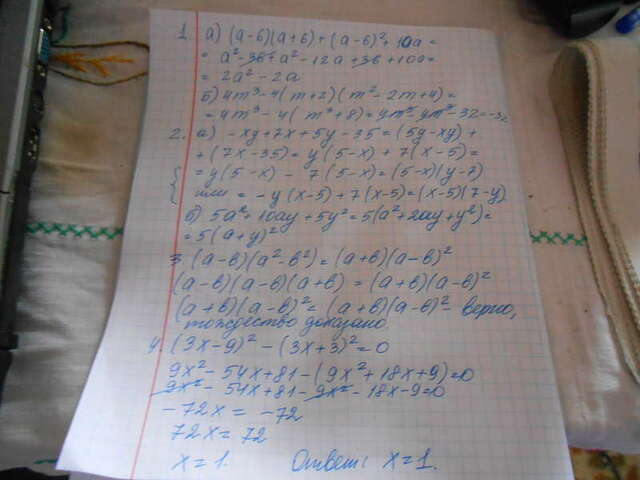 1. а) (а-6)(а+6)+(а-6)²+10а=
= а²-36+а²-12а+36+10а=
= 2а²-2а
б) 4m³-4(m+2)(m²-2m+4)=
= 4m³-4(m³+8)=4m³-4m³-32=-32
2. а) -xy+7x+5y-35=(5y-xy)+
+(7x-35)=y(5-x)+7(x-5)=
=y(5-x)-7(5-x)=(5-x)(y-7)
или = -y(x-5)+7(x-5)=(x-5)(7-y)
б) 5а²+10ay+5y²=5(а²+2ay+y²)=
=5(а+y)²
3. (а-в)(а²-в²)=(а+в)(а-в)²
(а-в)(а-в)(а+в)=(а+в)(а-в)²
(а+в)(а-в)²=(а+в)(а-в)²- верно,
тождество доказано.
4. (3x-9)²-(3x+3)²=0
9x²-54x+81-(9x²+18x+9)=0
9x²-54x+81-9x²-18x-9=0
-72x=-72
72x=72
x=1. Ответ: x=1.